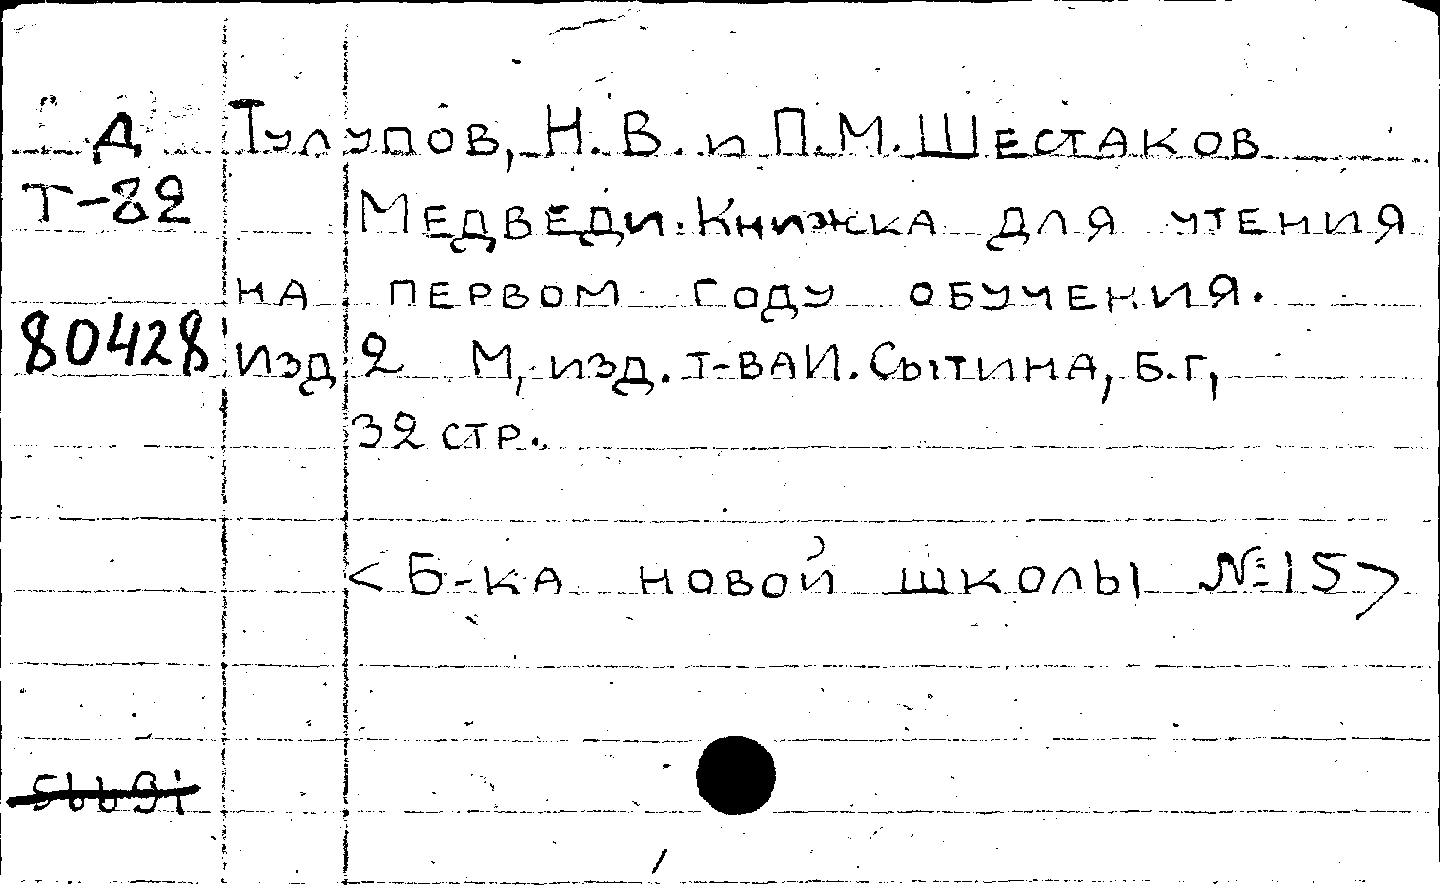 Д Тулупов, Н. В. и П. М. Шестаков
Т-82 Медведи. Книжка для чтения
на первом году обучения.
80428 изд 2 М, изд. т-ва И. Сытина, Б.Г,
32 стр.
<Б-ка новой школы №15>